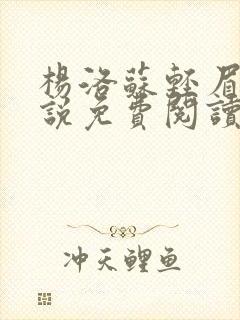 楊洛蘇輕眉
說免費閱讀
冲天鲤鱼